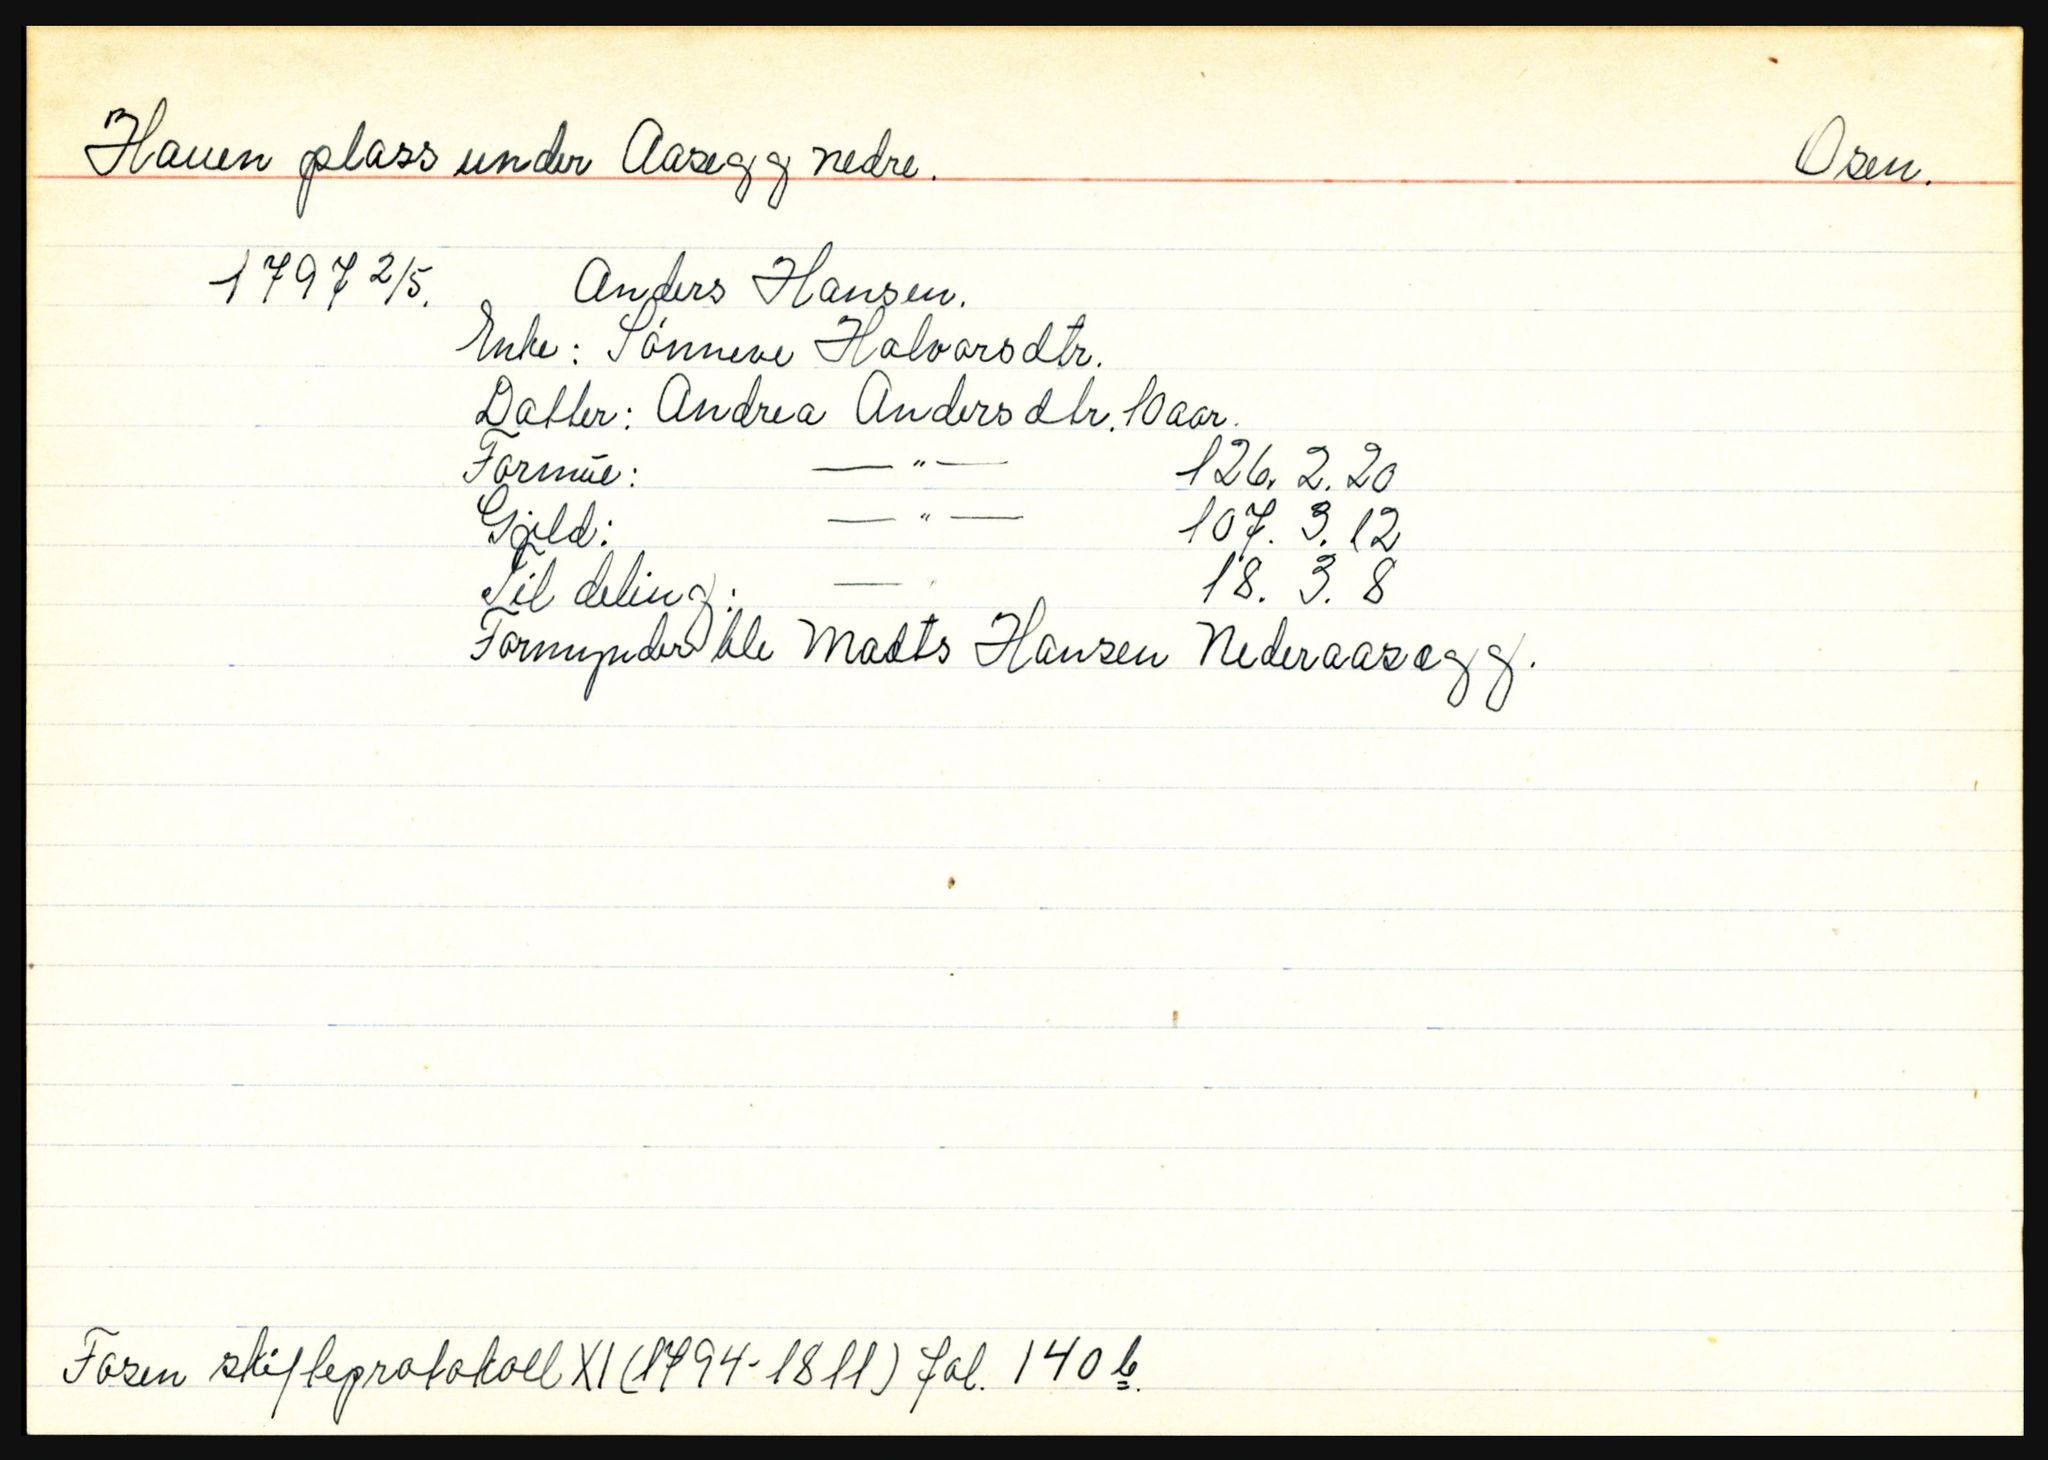 Hauen plass under Aasegg nedre. Osen.
1797 2/5. Anders Hansen.
Enke: Sönneve Halvorsdtr.
Datter: Andrea Andersdtr. 10 aar.
Formue: — " — 126. 2. 20
Gjeld: — " — 107. 3. 12
Til deling: — 18. 3. 8
Formynder ble Madts Hansen Nederaasegg.
Fosen skifteprotokoll XI (1794-1811) fol. 140 b.